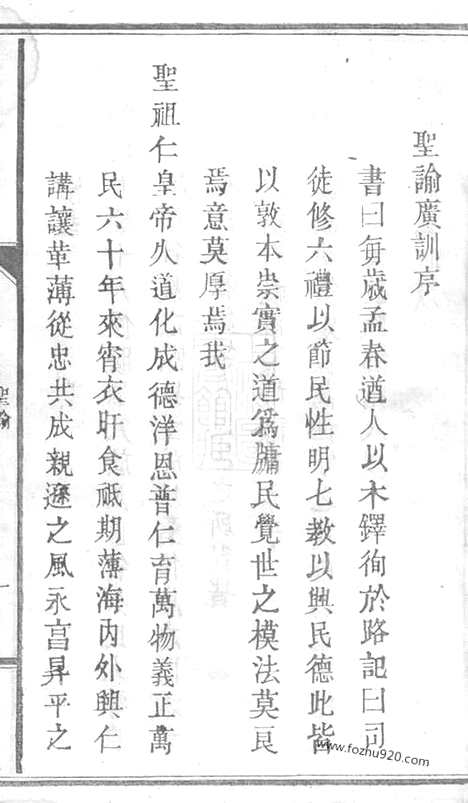 聖諭廣訓序
書曰每歲孟春遒人以木鐸徇於路記曰司
徒修六禮以節民性明七教以興民德此皆
以敦本崇實之道爲牖民覺世之模法莫良
焉意莫厚焉我
聖祖仁皇帝久道化成德洋恩普仁育萬物義正萬
民六十年來宵衣旰食祗期薄海內外興仁
講讓革薄從忠共成親遜之風永享昇平之
聖諭
一
www.fozhu920.com